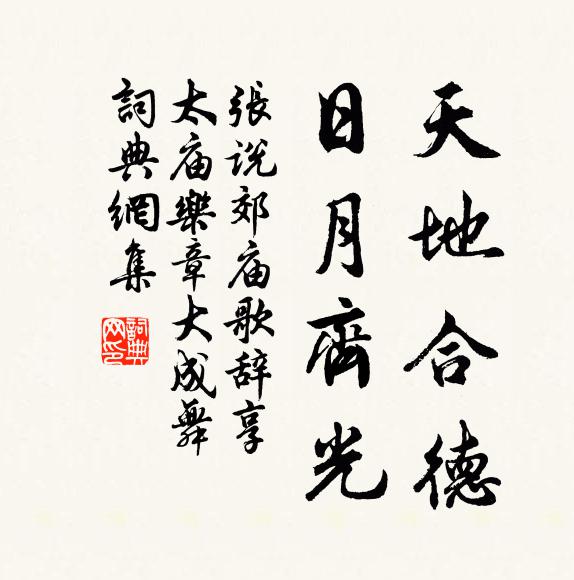 天地合德
日月齊光
張说郊庙歌辞享
太庙樂章大成舞
詞典網集
詞典网印